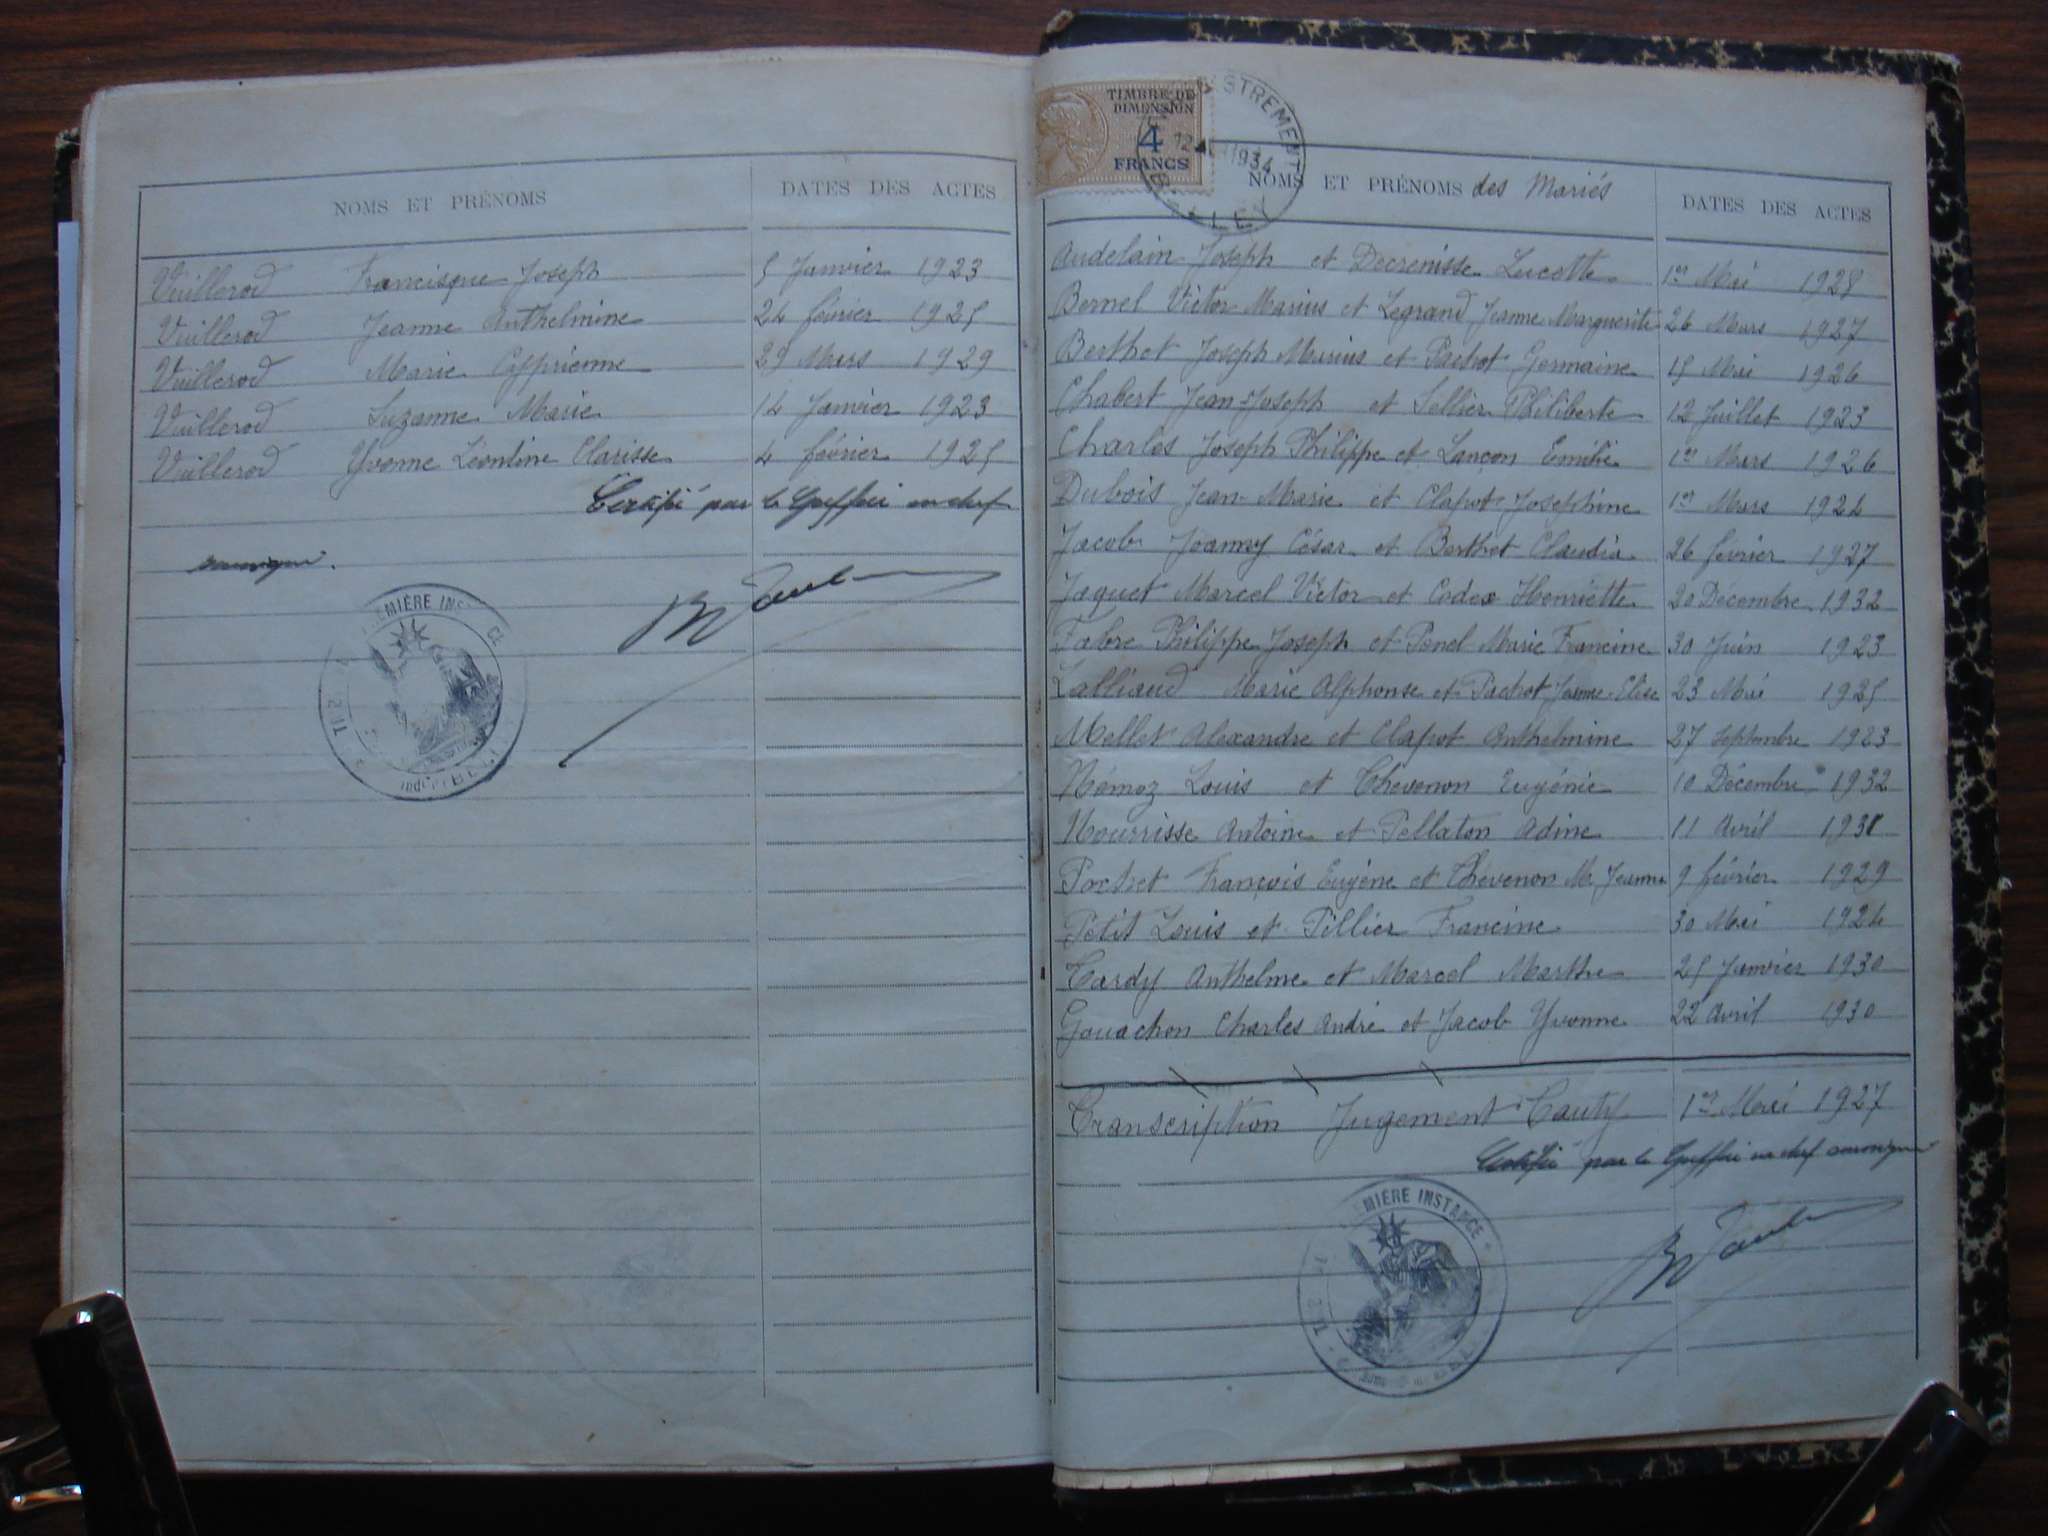 NOMS ET PRÉNOMS DATES DES ACTES
Vuillerod Francisque Joseph 5 Janvier 1923
Vuillerod Jeanne Anthelmine 24 février 1925
Vuillerod Marie Cyprienne 29 Mars 1929
Vuillerod Suzanne Marie 14 Janvier 1923
Vuillerod Yvonne Léontine Clarisse 4 février 1925
Certifié par le Greffier en chef
soussigné.
PREMIÈRE INSTANCE
TIMBRE DE
DIMENSION
4
FRANCS
ENREGISTREMENT
12 1934
BELLEY
NOMS ET PRÉNOMS des Mariés DATES DES ACTES
Audelain Joseph et Decrenisse Lucette 1er Mai 1928
Bernel Victor Marius et Legrand Jeanne Marguerite 26 Mars 1927
Berthet Joseph Marius et Pachot Germaine 15 Mai 1926
Chabert Jean-Joseph et Sellier Philiberte 12 Juillet 1923
Charles Joseph Philippe et Lançon Emilie 1er Mars 1926
Dubois Jean-Marie et Clapot Joséphine 1er Mars 1924
Jacob Joanny César et Berthet Claudia 26 février 1927
Jaquet Marcel Victor et Codex Henriette 20 Décembre 1932
Fabre Philippe Joseph et Ponel Marie Francine 30 Juin 1923
Lalliaud Marie Alphonse et Pachot Jeanne-Elise 23 Mai 1925
Mellet Alexandre et Clapot Anthelmine 27 Septembre 1923
Némoz Louis et Thevenon Eugénie 10 Décembre 1932
Nourrisse Antoine et Pellaton Adine 11 Avril 1931
Pochet François Eugène et Thévenon M. Jeanne 9 février 1929
Petit Louis et Pillier Francine 30 Mai 1924
Tardy Anthelme et Marcel Marthe 25 Janvier 1930
Gouachon Charles André et Jacob Yvonne 22 Avril 1930
Transcription Jugement Tauty 1er Mai 1927
Certifié par le Greffier en chef soussigné
PREMIÈRE INSTANCE